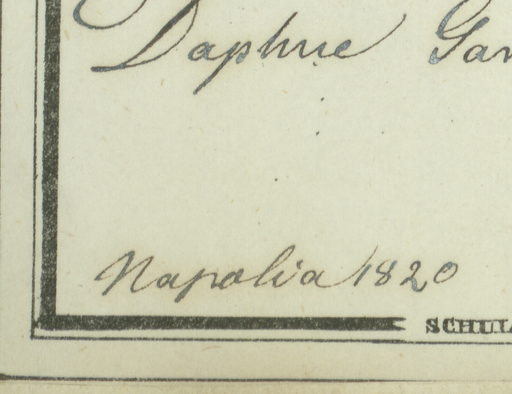 Daphne Gar
Napolia 1820
SCHUL